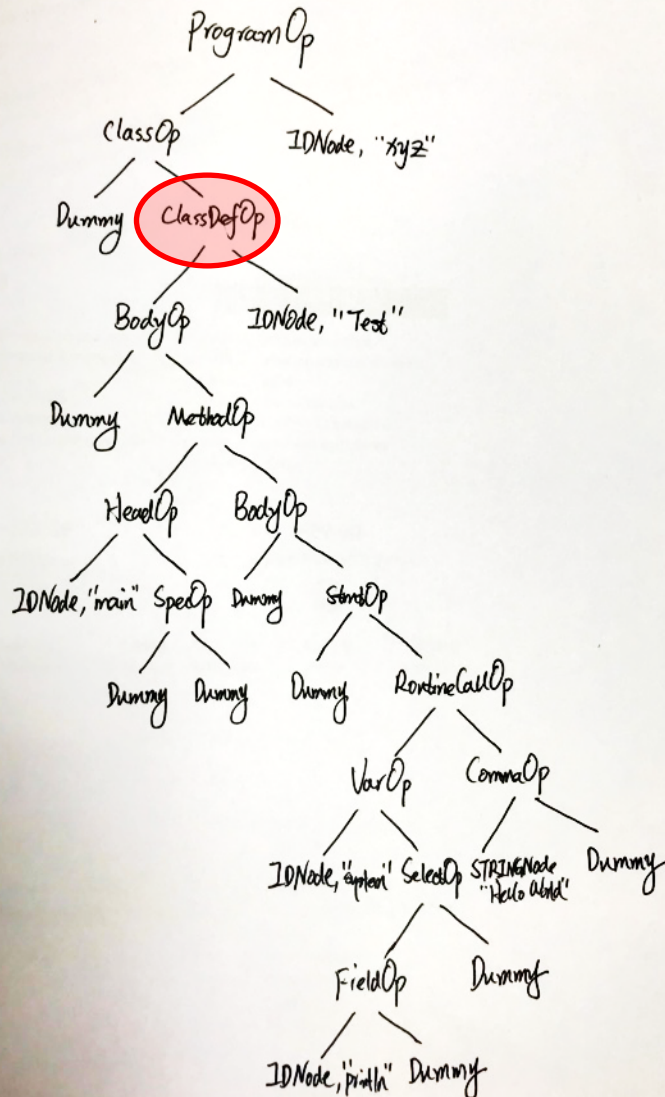 ProgramOp
ClassOp IDNode, "xyz"
Dummy ClassDefOp
BodyOp IDNode, "Test"
Dummy MethodOp
HeadOp BodyOp
IDNode, "main" SpecOp Dummy StmtOp
Dummy Dummy Dummy RoutineCallOp
VarOp CommaOp
IDNode, "system" SelectOp STRINGNode Dummy
"Hello World"
FieldOp Dummy
IDNode, "println" Dummy